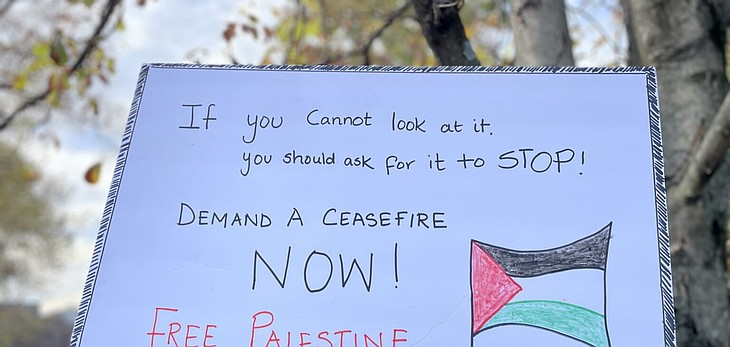 If you Cannot look at it.
you should ask for it to STOP!
DEMAND A CEASEFIRE
NOW!
FREE PALESTINE